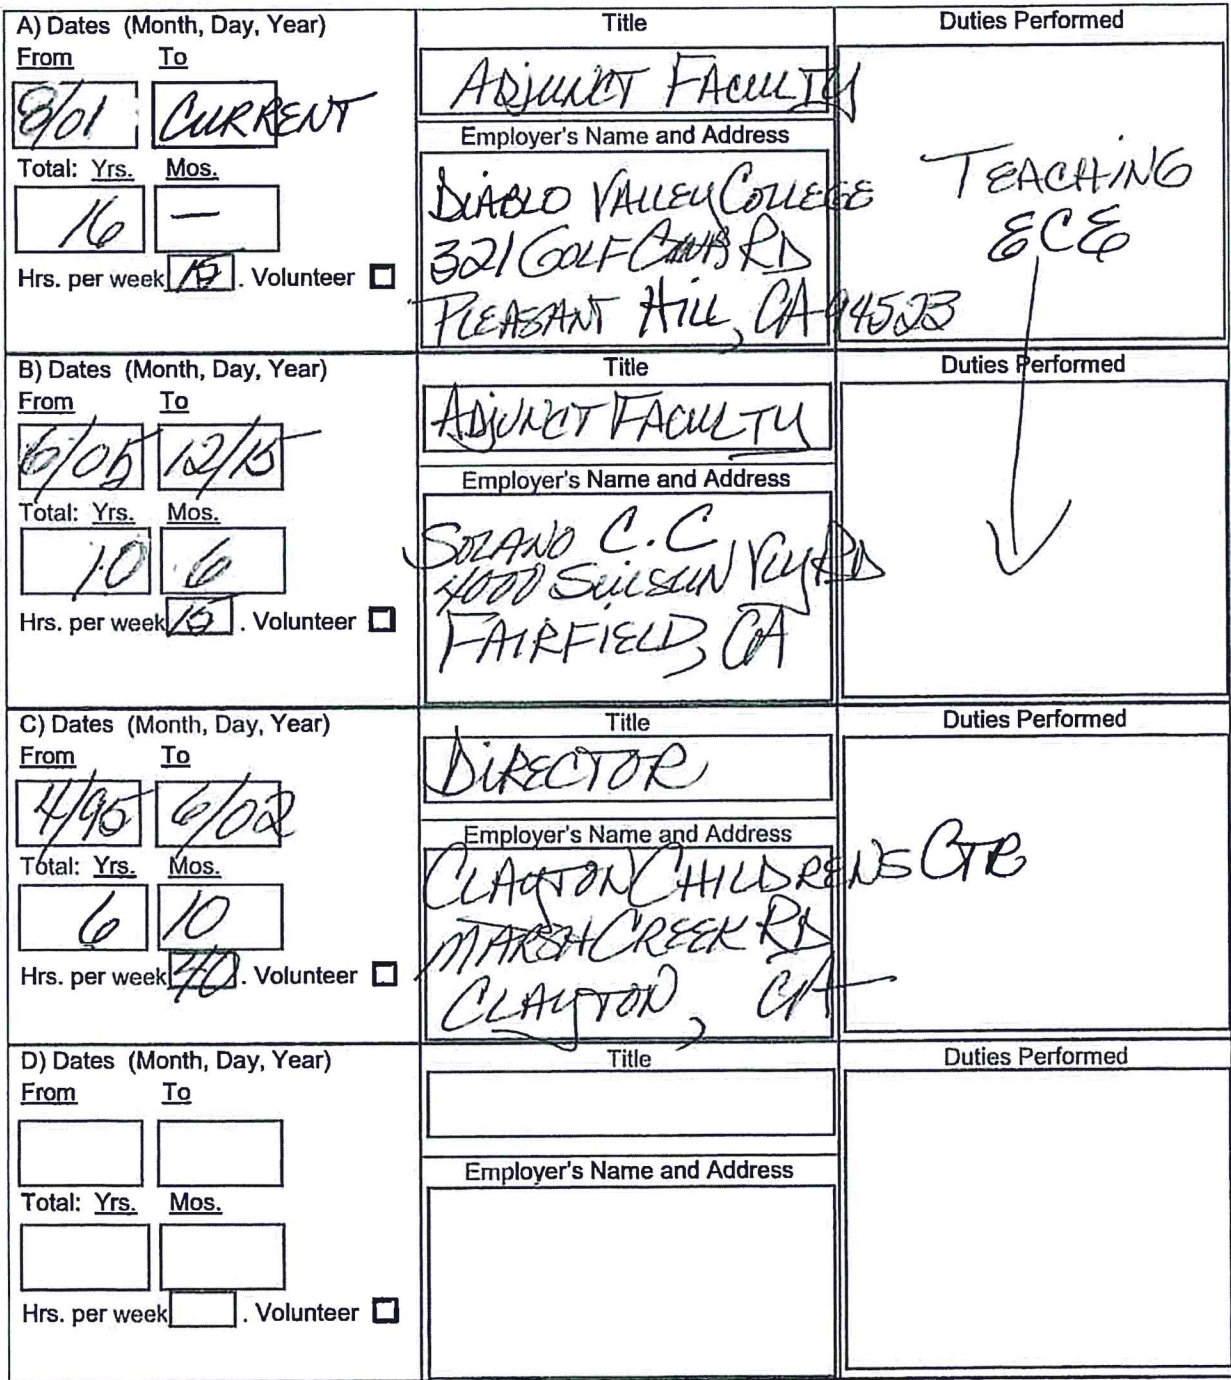 A) Dates (Month, Day, Year)
From To
8/01 CURRENT
Total: Yrs. Mos.
16 —
Hrs. per week 15. Volunteer ☐
Title
ADJUNCT FACULTY
Employer's Name and Address
DIABLO VALLEY COLLEGE
321 GOLF CLUB RD
PLEASANT HILL, CA 94523
Duties Performed
TEACHING
ECE
B) Dates (Month, Day, Year)
From To
6/05 12/15
Total: Yrs. Mos.
10 6
Hrs. per week 15. Volunteer ☐
Title
ADJUNCT FACULTY
Employer's Name and Address
SOLANO C.C
4000 SUISUN VLY RD
FAIRFIELD, CA
Duties Performed
C) Dates (Month, Day, Year)
From To
4/95 6/02
Total: Yrs. Mos.
6 10
Hrs. per week 40. Volunteer ☐
Title
DIRECTOR
Employer's Name and Address
CLAYTON CHILDRENS CTR
MARSH CREEK RD
CLAYTON, CA
Duties Performed
D) Dates (Month, Day, Year)
From To
Total: Yrs. Mos.
Hrs. per week . Volunteer ☐
Title
Employer's Name and Address
Duties Performed